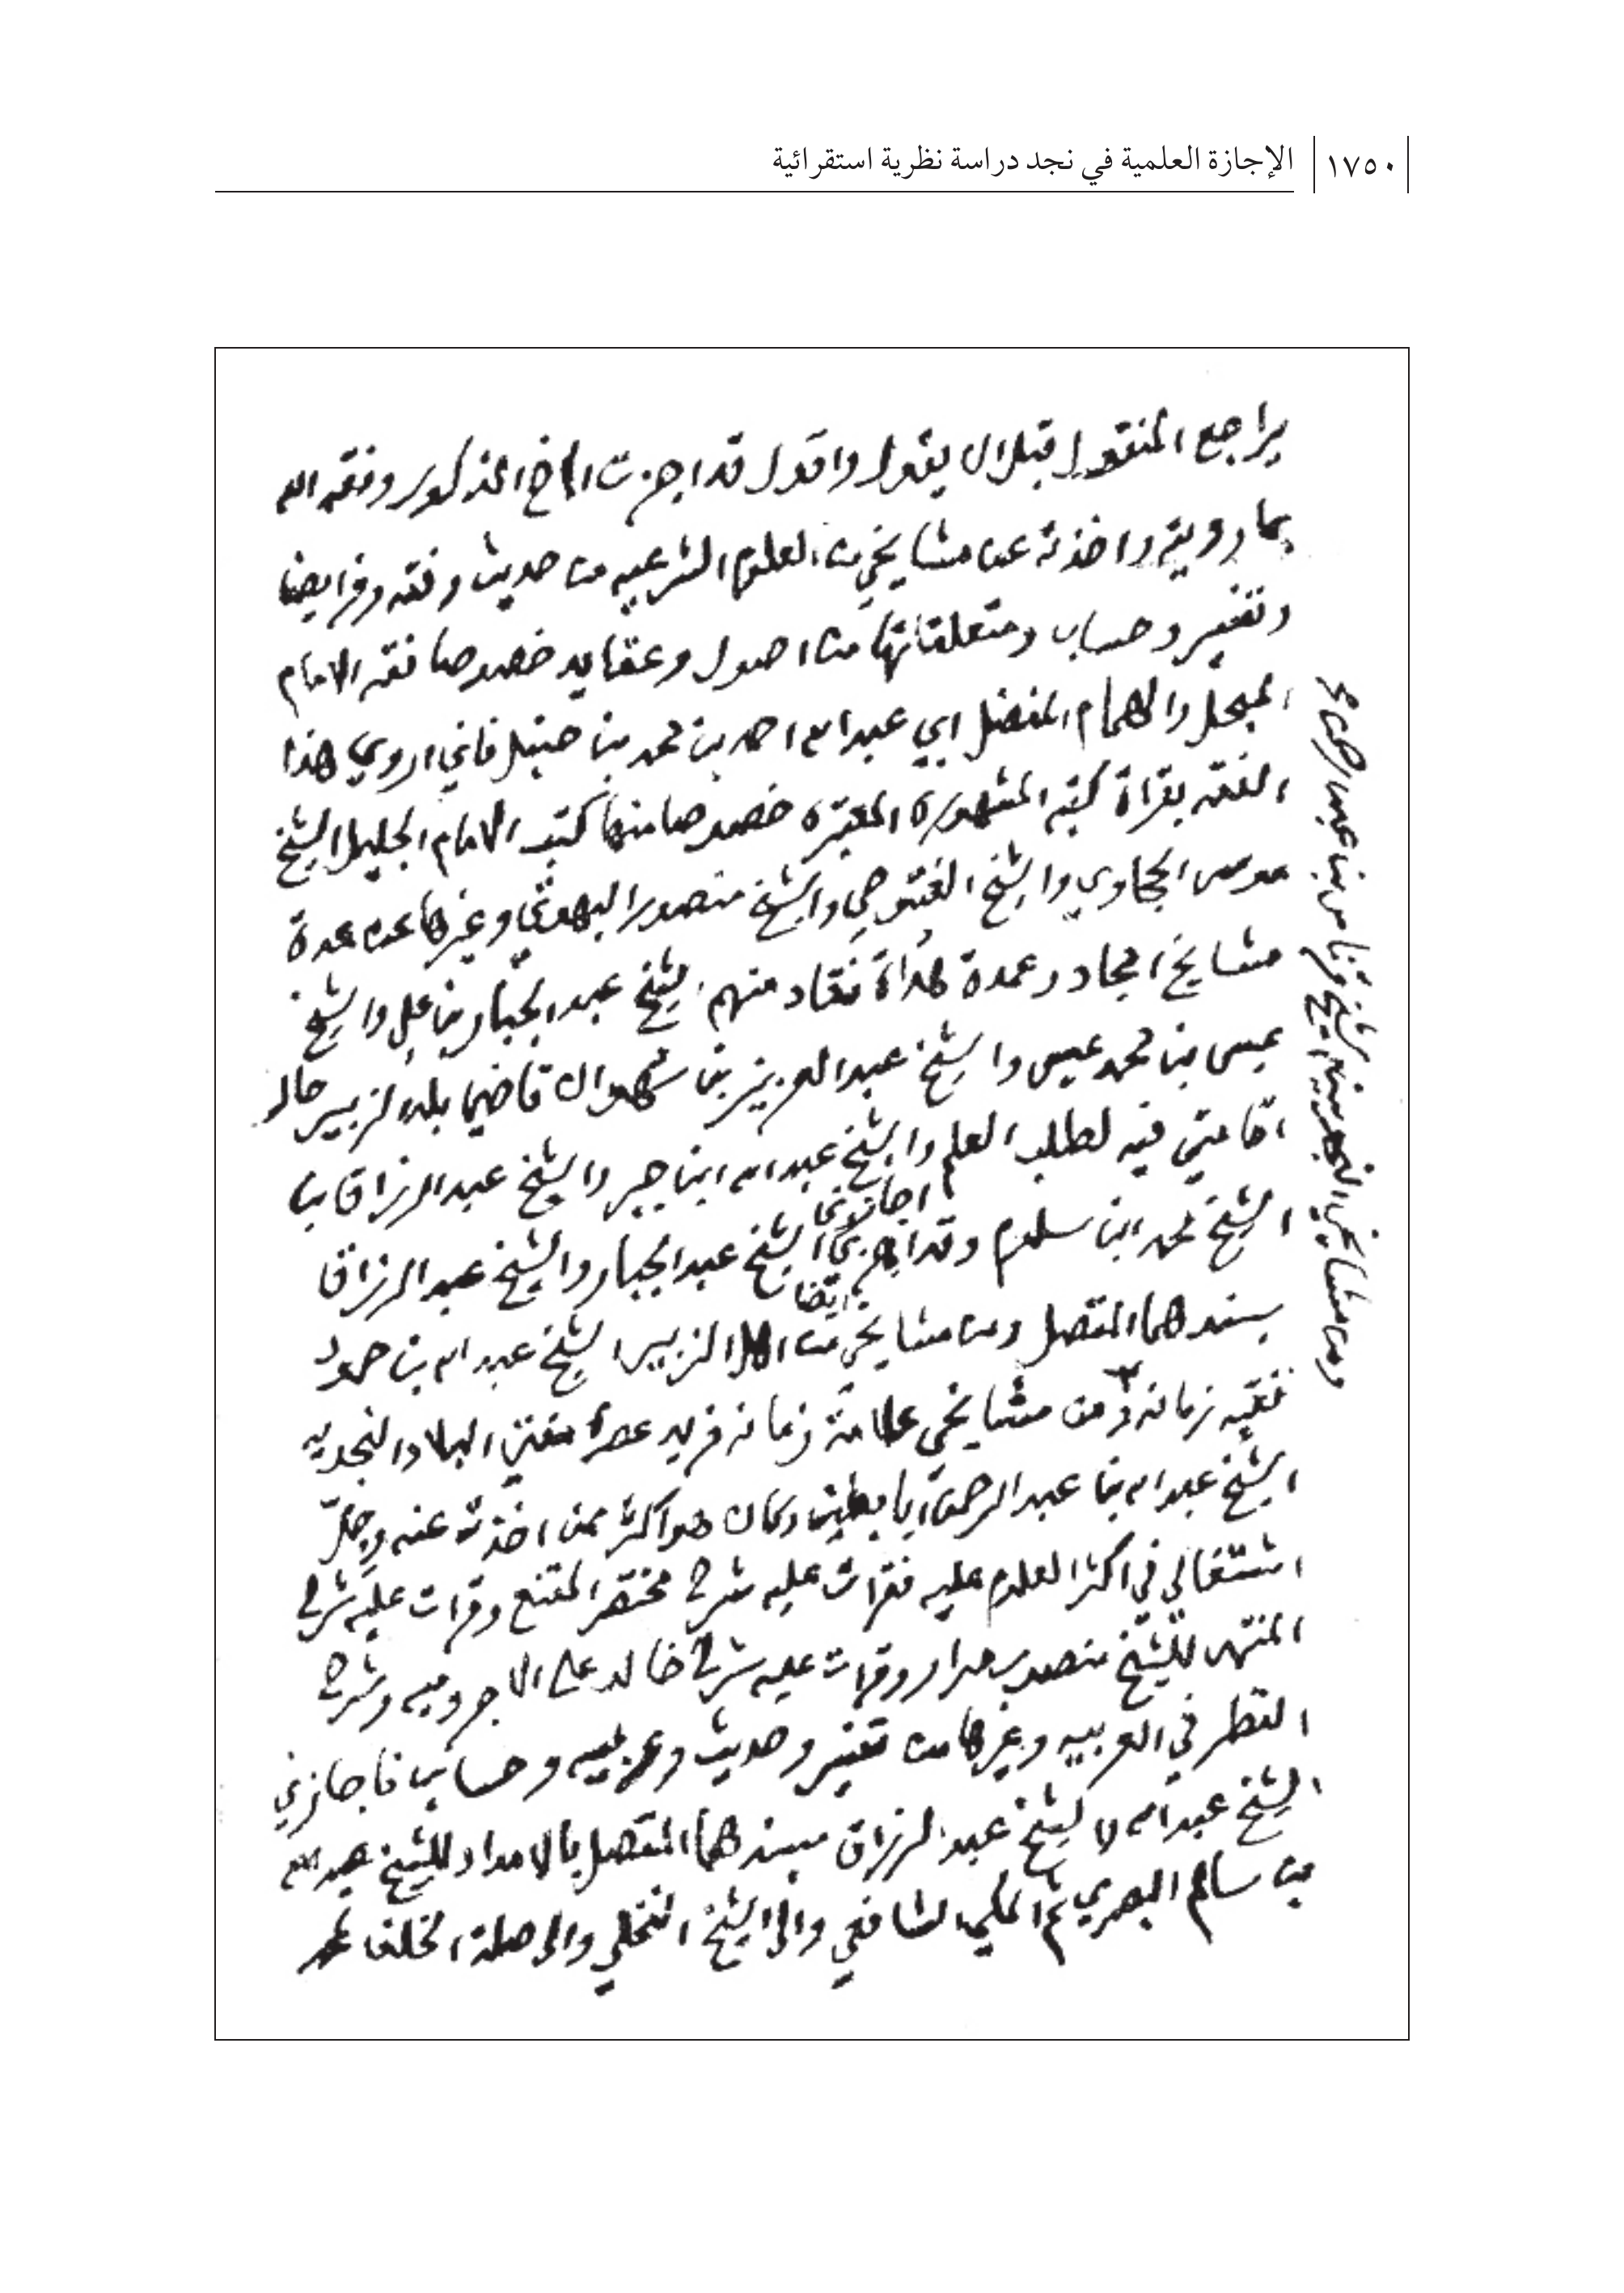 ١٧٥٠ الإجازة العلمية في نجد دراسة نظرية استقرائية
يراجع المنقول قبل ان يقول واقول قد اجزت الاخ المذكور وفقه الله
بما رويته واخذته عن مشايخي من العلوم الشرعيه من حديث وفقه وفرايض
وتفسير وحساب ومتعلقاتها من اصول وعقايد خصوصا فقه الامام
المبجل والهمام المفضل ابي عبدالله احمد بن محمد بن حنبل فاني اروي هذا
الفقه بقراة كتبه المشهورة المعتبره خصوصا منها كتب الامام الجليل الشيخ
موسى الحجاوي والشيخ الفتوحي والشيخ منصور البهوتي وغيرها عن عدة
مشايخ امجاد وعمدة هداة نقاد منهم الشيخ عبدالجبار بن علي والشيخ
عيسى بن محمد عيسى والشيخ عبدالعزيز بن شهوان قاضيا بلد الزبير حال
اقامتي فيه لطلب العلم والشيخ عبدالله ابن جبر والشيخ عبد الرزاق بن
الشيخ محمد ابن سلوم وقد اجازني الشيخ عبدالجبار والشيخ عبد الرزاق
بسندهما المتصل ومن مشايخي من اهل الزبير ايضا الشيخ عبدالله بن حمود
فقيه زمانه ومن مشايخي علامة زمانه فريد عصره مفتي البلاد النجديه
الشيخ عبدالله بن عبد الرحمن ابا بطين وكان هو اكثر من اخذت عنه وجل
اشتغالي في اكثر العلوم عليه فقرات عليه شرح مختصر المقنع وقرات عليه شرح
المنتهى للشيخ منصور مرارا وقرات عليه شرح خالد على الاجروميه وشرح
القطر في العربيه وغيرها من تفسير وحديث وعربيه وحساب فاجازني
الشيخ عبدالله كالشيخ عبد الرزاق بسندهما المتصل بالامداد للشيخ عبدالله
بن سالم البصري ثم المكي الشافعي والى الشيخ النخلي والى صلة الخلف لمحمد
ومن مشايخي